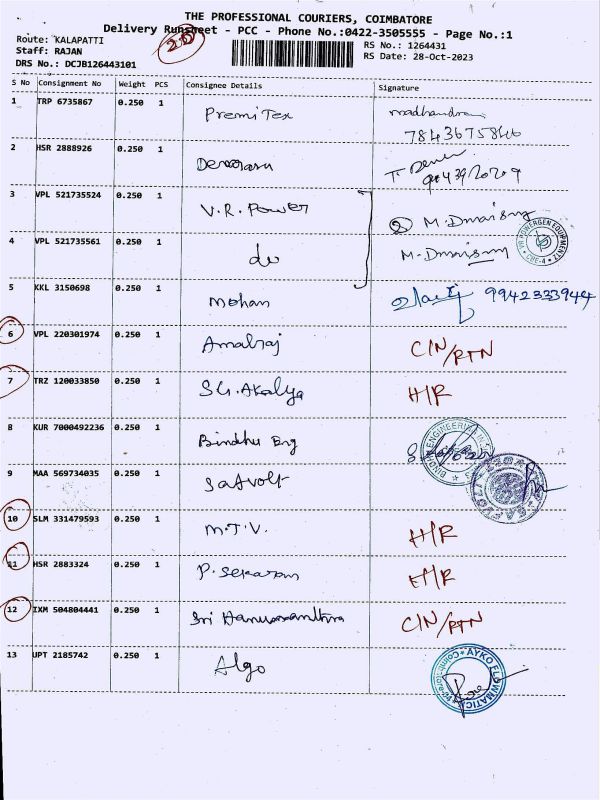 THE PROFESSIONAL COURIERS, COIMBATORE
Delivery Runsheet - PCC - Phone No.:0422-3505555 - Page No.:1
Route: KALAPATTI
Staff: RAJAN
DRS No.: DCJB126443101
RS No.: 1264431
RS Date: 28-Oct-2023
S No Consignment No Weight PCS Consignee Details Signature
1 TRP 6735867 0.250 1 PremiTex
7843675846
2 HSR 2888926 0.250 1
3 VPL 521735524 0.250 1 V.R. Power
4 VPL 521735561 0.250 1 do
VR POWERGEN EQUIPMENTZ CBE-4
5 KKL 3150698 0.250 1 Mohan 9942333944
6 VPL 220301974 0.250 1 Amalraj CIN/RTN
7 TRZ 120033850 0.250 1 SG. Akalya H/R
8 KUR 7000492236 0.250 1 Bindhu Eng
9 MAA 569734035 0.250 1 Satvolt
10 SLM 331479593 0.250 1 M.T.V. H/R
11 HSR 2883324 0.250 1 P. Sekaran H/R
12 IXM 504804441 0.250 1 Sri CIN/RTN
13 UPT 2185742 0.250 1 Algo
AYKO FLOWMATICS